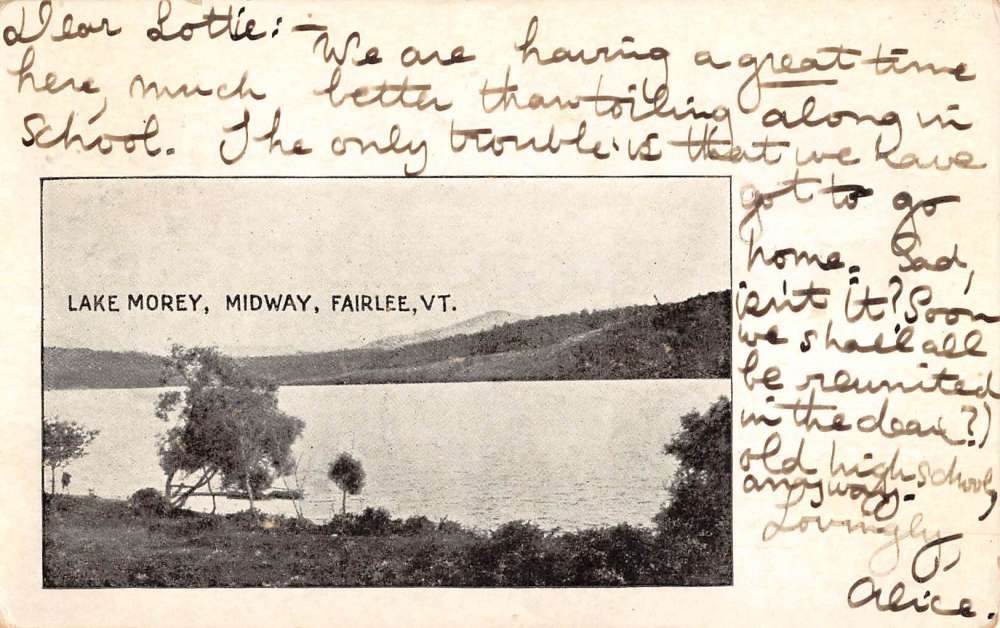 Dear Lottie:-
We are having a great time
here, much better than toiling along in
school. The only trouble is that we have
got to go
home. Sad,
isn't it? Soon
we shall all
be reunited
in the dear(?)
old high school,
anyway.
Lovingly,
Alice.
LAKE MOREY, MIDWAY, FAIRLEE, VT.